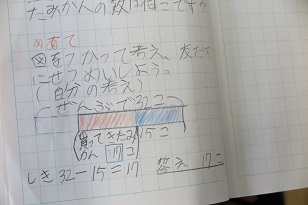 たみかんの数は何こですか
めあて
図をつかって考え、友だち
にせつめいしよう。
(自分の考え)
ぜんぶで32こ
買ってきたみ 15こ
かん 17こ
しき 32-15=17 答え 17こ